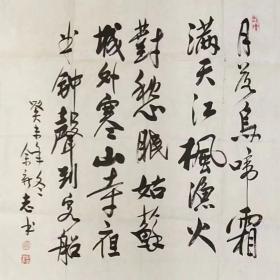 月落烏啼霜
滿天江楓漁火
對愁眠姑蘇
城外寒山寺夜
半鐘聲到客船
癸未年冬
余新志书